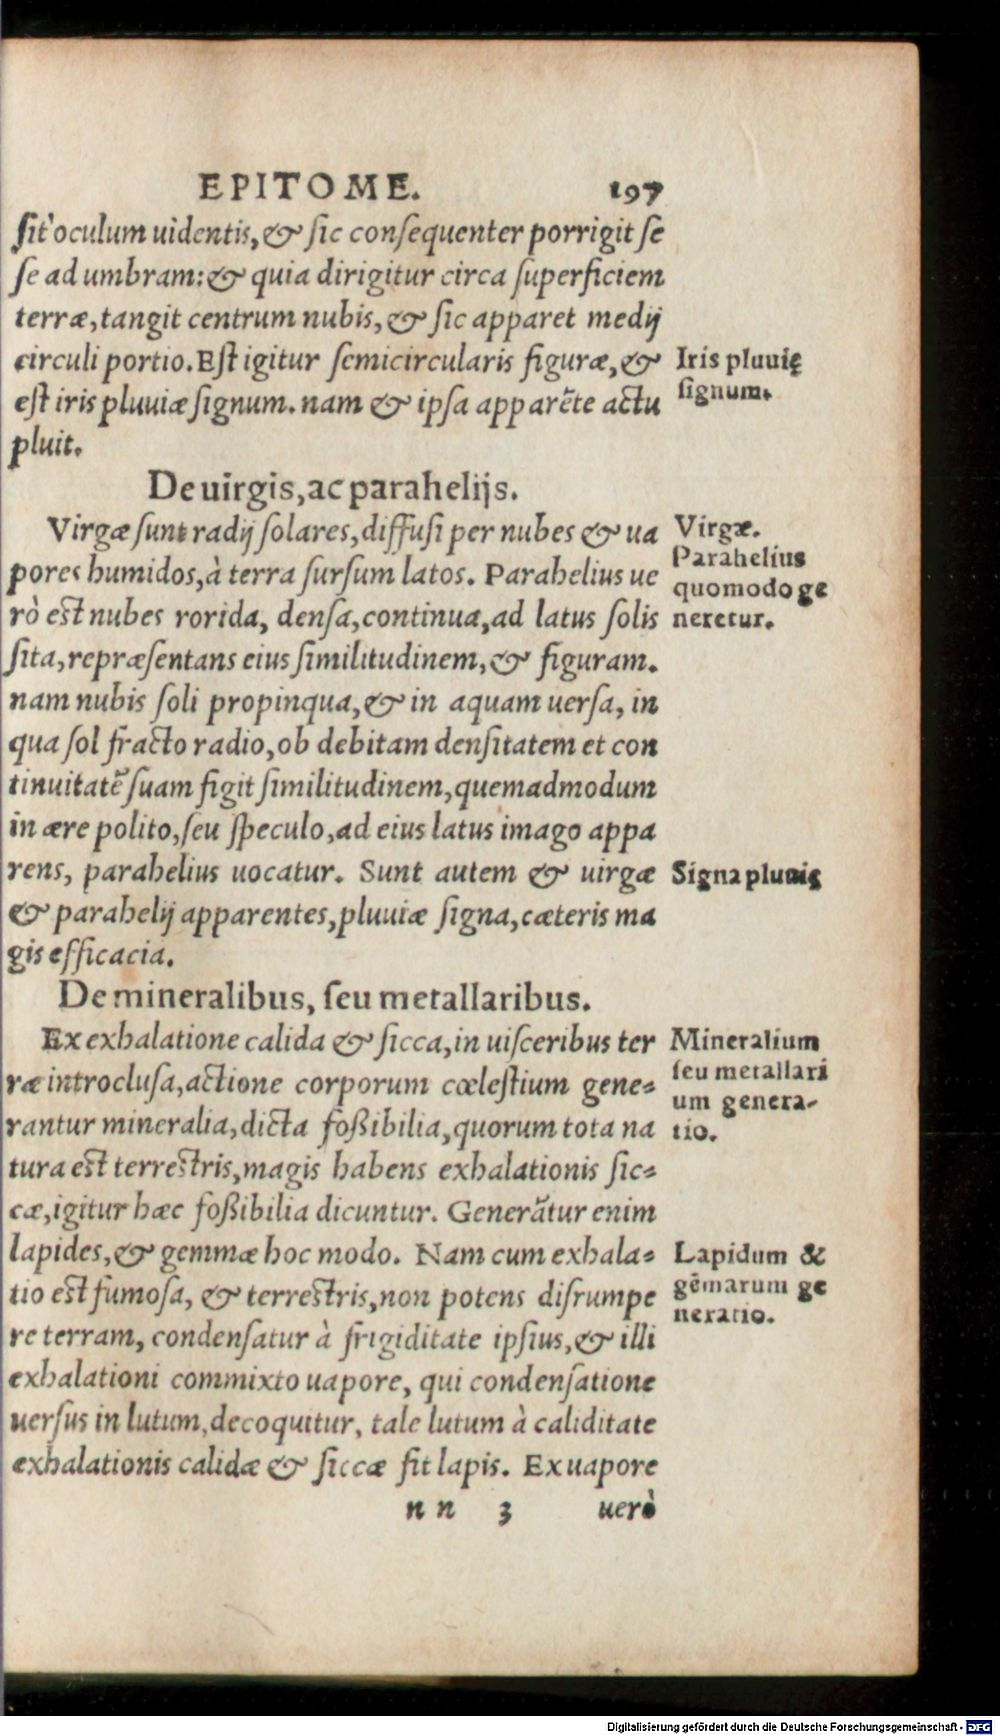 EPITOME. 197
ſit oculum uidentis, & ſic conſequenter porrigit ſe
ſe ad umbram: & quia dirigitur circa ſuperficiem
terræ, tangit centrum nubis, & ſic apparet medij
circuli portio. Eſt igitur ſemicircularis figuræ, &
eſt iris pluuiæ ſignum. nam & ipſa apparẽte actu
pluit.
Iris pluuię
ſignum.
De uirgis, ac parahelijs.
Virgæ ſunt radij ſolares, diffuſi per nubes & ua
pores humidos, à terra ſurſum latos. Parahelius ue
rò eſt nubes rorida, denſa, continua, ad latus ſolis
ſita, repræſentans eius ſimilitudinem, & figuram.
nam nubis ſoli propinqua, & in aquam uerſa, in
qua ſol fracto radio, ob debitam denſitatem et con
tinuitatẽ ſuam figit ſimilitudinem, quemadmodum
in ære polito, ſeu ſpeculo, ad eius latus imago appa
rens, parahelius uocatur. Sunt autem & uirgæ
& parahelij apparentes, pluuiæ ſigna, cæteris ma
gis efficacia.
Virgæ.
Parahelius
quomodo ge
neretur.
Signa pluuię
De mineralibus, ſeu metallaribus.
Ex exhalatione calida & ſicca, in uiſceribus ter
ræ introcluſa, actione corporum cœleſtium gene-
rantur mineralia, dicta foßibilia, quorum tota na
tura eſt terreſtris, magis habens exhalationis ſic-
cæ, igitur hæc foßibilia dicuntur. Generãtur enim
lapides, & gemmæ hoc modo. Nam cum exhala-
tio eſt fumoſa, & terreſtris, non potens diſrumpe
re terram, condenſatur à frigiditate ipſius, & illi
exhalationi commixto uapore, qui condenſatione
uerſus in lutum, decoquitur, tale lutum à caliditate
exhalationis calidæ & ſiccæ fit lapis. Ex uapore
Mineralium
ſeu metallari
um genera-
tio.
Lapidum &
gẽmarum ge
neratio.
n n 3 uerò
Digitalisierung gefördert durch die Deutsche Forschungsgemeinschaft - DFG